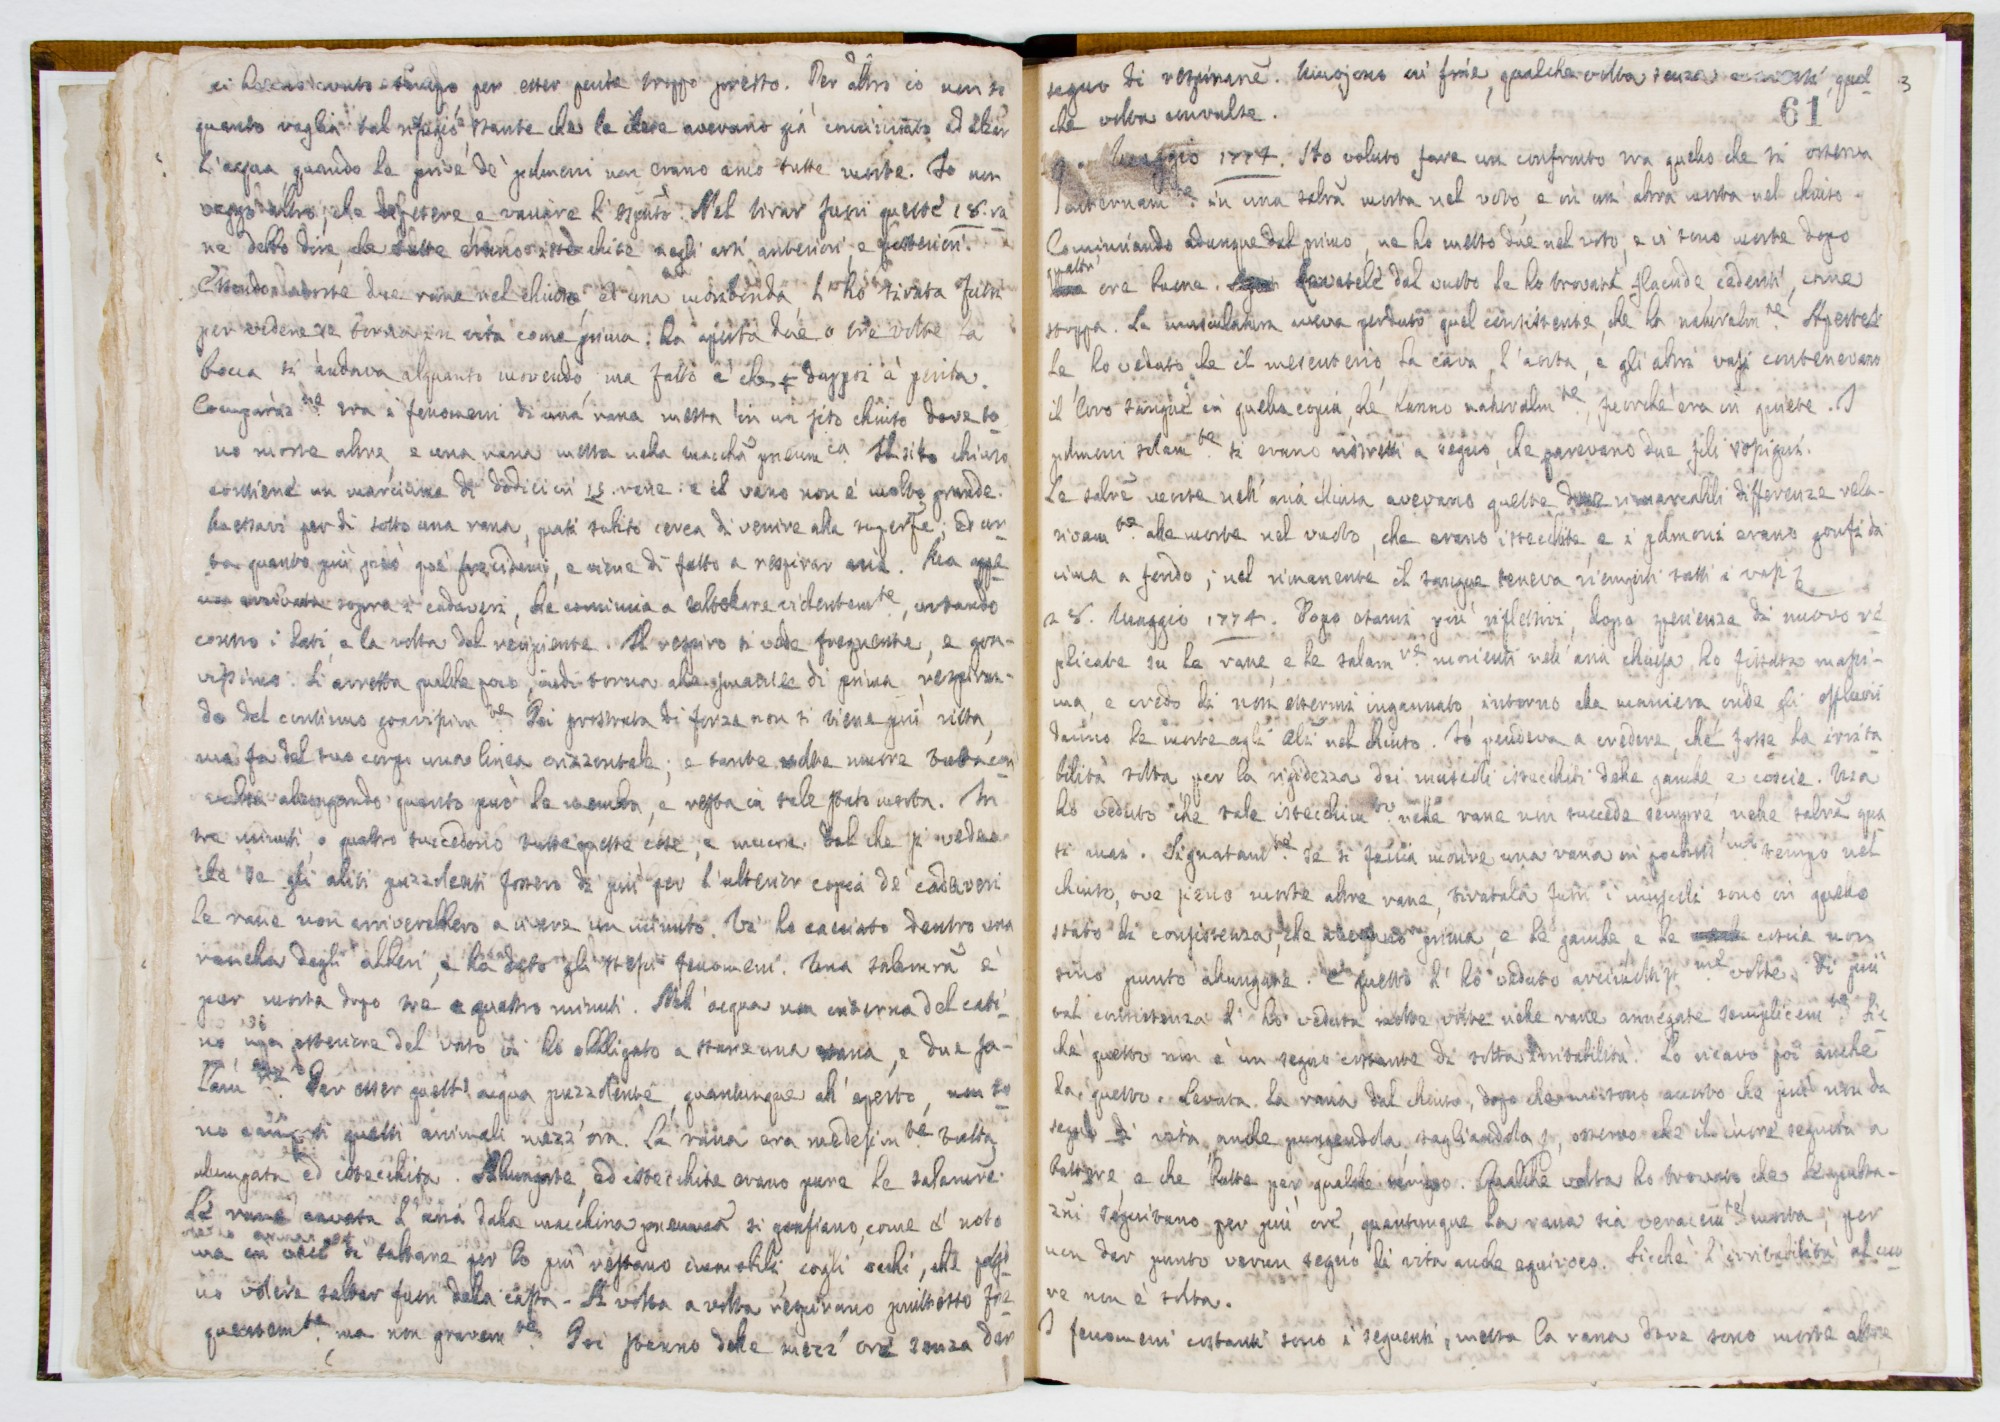 per esser perite troppo presto. Per altro io non so
quanto vaglia tal rifugio, stante che le altre avevano già cominciato ad alzar
l'acqua quando le prive de' polmoni non erano anco tutte morte. Io non
veggo altro, che Nel tirar fuori queste 18. ra
ne debbo dire, che tutte erano istecchite negli arti anteriori, e posteriori.
Essendo morte due rane nel chiuso, ed una moribonda l'ho tirata fuori
per vedere se torna in vita come prima: ha aperta due o tre volte la
bocca si andava alquanto movendo, ma fatto è che doppoi è perita.
Comparaz.ne tra i fenomeni di una rana messa in un sito chiuso dove so
no morte altre, e una rana messa nella macchã pneum.ca Il sito chiuso
contiene un marciume di dodici in 15. rane: e il vano non è molto grande.
Messavi per di sotto una rana, quasi subito cerca di venire alla superf.e; ed ur
ta quanto può i cadaveri, e viene di fatto a respirar aria. Ma appe
na arrivata sopra i cadaveri, che comincia a saltellare violentem.te, urtando
contro i lati, e la volta del recipiente. Il respiro si vede frequente, e gra-
vissimo. Si arresta qualche poco, indi torna alle smanie di prima, respiran-
do del continuo gravissim.te Poi prostrata di forze non si tiene più ritta,
ma fa del suo corpo una linea orizzontale; e tante volte muore tutta con
vulsa allungando quanto può le membra, e resta in tale stato morta. In
tre minuti, o quattro succedono tutte queste cose, e muore. Dal che si vede
che se gli aliti puzzolenti fossero di più per l'ulterior copia de' cadaveri
le rane non arriverebbero a vivere un minuto. Vi ho cacciato dentro una
ranella degli alberi, e ha dato gli stessi fenomeni. Una salamrã è
pur morta dopo tre e quattro minuti. Nell'acqua non interna del cati
no ma esteriore del vaso vi ho obbligato a stare una rana, e due sa-
lam.re Per esser quest'acqua puzzolente, quantunque all'aperto, non so
no campati questi animali mezz'ora. La rana era medesim.te tutta
allungata ed istecchita. Allungate, ed istecchite erano pure le salamre
Le rane cavata l'aria dalla macchina pneumca si gonfiano, come è noto
ma in vece di saltare per lo più restano immobili, cogli occhi, che pajo
no volere saltar fuori della cassa. A volta a volta respirano piuttosto fre
quentem.te, ma non gravem.te Poi stanno delle mezz'ore senza dar
segno di respirare. Muojono in fine, qualche volta senza qual
3
61
che volta convulse.
Maggio 1774. Ho voluto fare un confronto tra quello che si osserva
internam.te in una salrã morta nel voto, e in un'altra morta nel chiuso.
Cominciando adunque dal primo, ne ho messo due nel voto, e vi sono morte dopo
quattro ore buone. Levatele dal vuoto le ho trovate flaccide, cedenti, come
stoppa. La muscolatura aveva perduto quel consistente, che ha naturalm.te Aperte
le, ho veduto che il mesenterio, la cava, l'aorta, e gli altri vasi contenevano
il loro sangue in quella copia, che hanno naturalm.te, fuorchè era in quiete. I
polmoni solam.te si erano ristretti a segno, che parevano due fili
Le salre morte nell'aria chiusa avevano queste due rimarcabili differenze rela-
tivam.te alle morte nel vuoto, che erano istecchite, e i polmoni erano gonfi da
cima a fondo; nel rimanente il sangue teneva riempiti tutti i vasi
28. Maggio 1774. Dopo essermi più riflettuti, dopo sperienze di nuovo re
plicate su le rane, e le salam.re morienti nell'aria chiusa, ho fissata massi-
ma, e credo di non essermi ingannato, intorno alla maniera onde gli effluvii
danno la morte agli Alĩ nel chiuso. Io pendeva a credere, che fosse la irrita
bilità tolta, per la rigidezza dei muscoli istecchiti delle gambe, e coscie. Ma
ho veduto che tale istecchim.to nelle rane non succede sempre, nelle salre qua
si mai. Segnatam.te se si faccia morire una rana in pochissi.mo tempo nel
chiuso, ove sieno morte altre rane, tiratala fuori i muscoli sono in quello
stato di consistenza, che avevano prima, e le gambe e le coscie non
sono punto allungate. E questo l'ho veduto arcimoltiss.me volte. Di più
tal consistenza l'ho veduta molte volte nelle rane annegate semplicem.te Sic
chè questo non è un segno costante di tolta irritabilità. Lo ricavo poi anche
da questo. Levata la rana dal chiuso, dopo che mi sono accorto che più non da
segno di vita, anche pungendola, tagliandola &, osservo che il cuore seguita a
battere, e che batte per qualche tempo. Qualche volta ho trovato che le pulsa-
zni seguivano per più ore, quantunque la rana sia veracem.te morta, per
non dar punto verun segno di vita anche equivoco. Sicchè l'irritabilità al cuo
re non è tolta.
I fenomeni costanti sono i seguenti, messa la rana dove sono morte altre